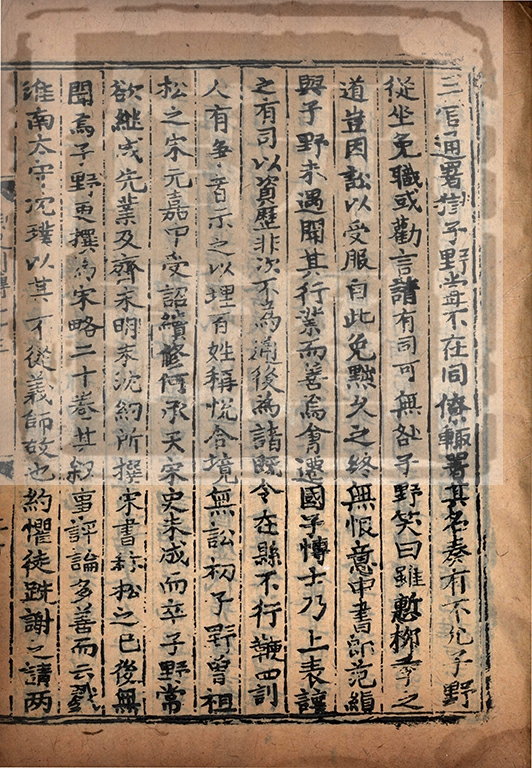 三官通署獄子野嘗不在同僚輙署其名奏有不允子野
從坐免職或勸言諸有司可無咎子野笑曰雖慙柳季之
道豈因訟以受服自此免黜久之終無恨意中書郎范縝
與子野未遇聞其行業而善焉會遷國子博士乃上表讓
之有司以資歷非次不為通後為諸暨令在縣不行鞭罰
人有爭者示之以理百姓稱悅合境無訟初子野曾祖
松之宋元嘉中受詔續修何承天宋史未成而卒子野常
欲繼成先業及齊永明末沈約所撰宋書稱松之已後無
聞焉子野更撰為宋略二十卷其叙事評論多善而云戮
淮南太守沈璞以其不從義師故也約懼徒跣謝之請兩